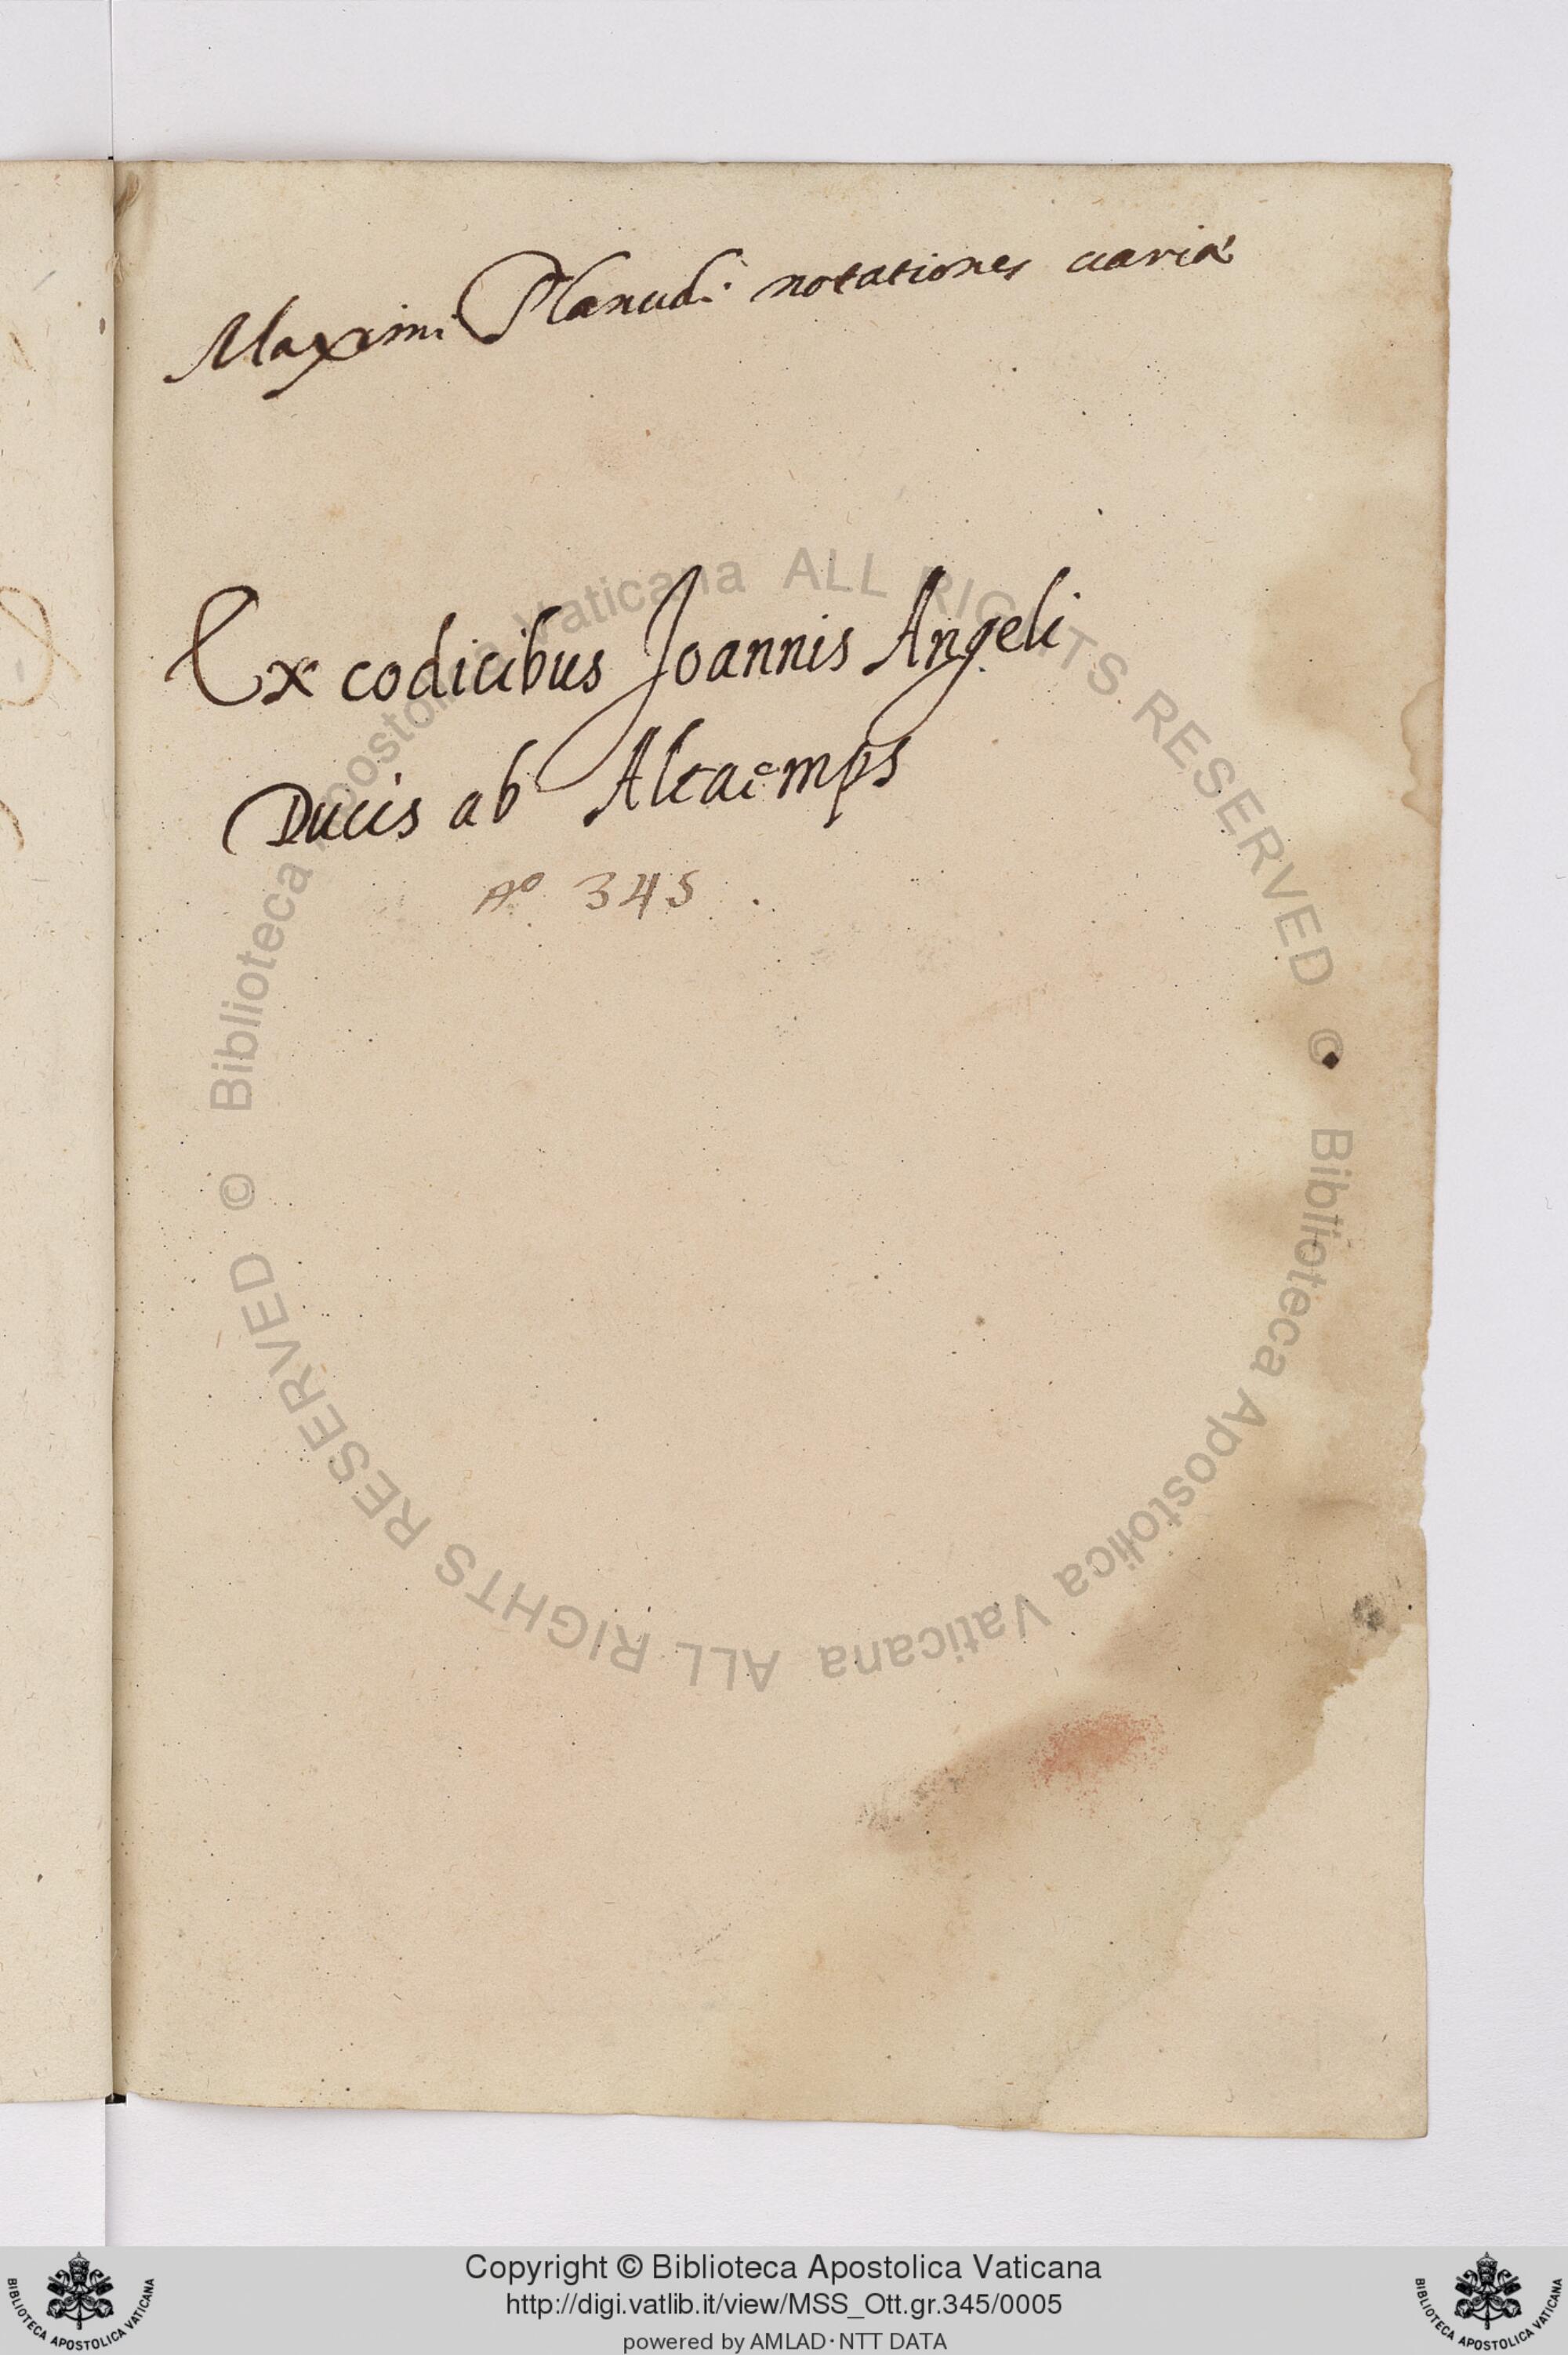 Maximi Planudi notationes uariæ
Ex codicibus Joannis Angeli
Ducis ab Altaemps
Aº 345.
© Biblioteca Apostolica Vaticana ALL RIGHTS RESERVED
© Biblioteca Apostolica Vaticana ALL RIGHTS RESERVED
Copyright © Biblioteca Apostolica Vaticana
http://digi.vatlib.it/view/MSS_Ott.gr.345/0005
powered by AMLAD·NTT DATA
BIBLIOTECA APOSTOLICA VATICANA
BIBLIOTECA APOSTOLICA VATICANA